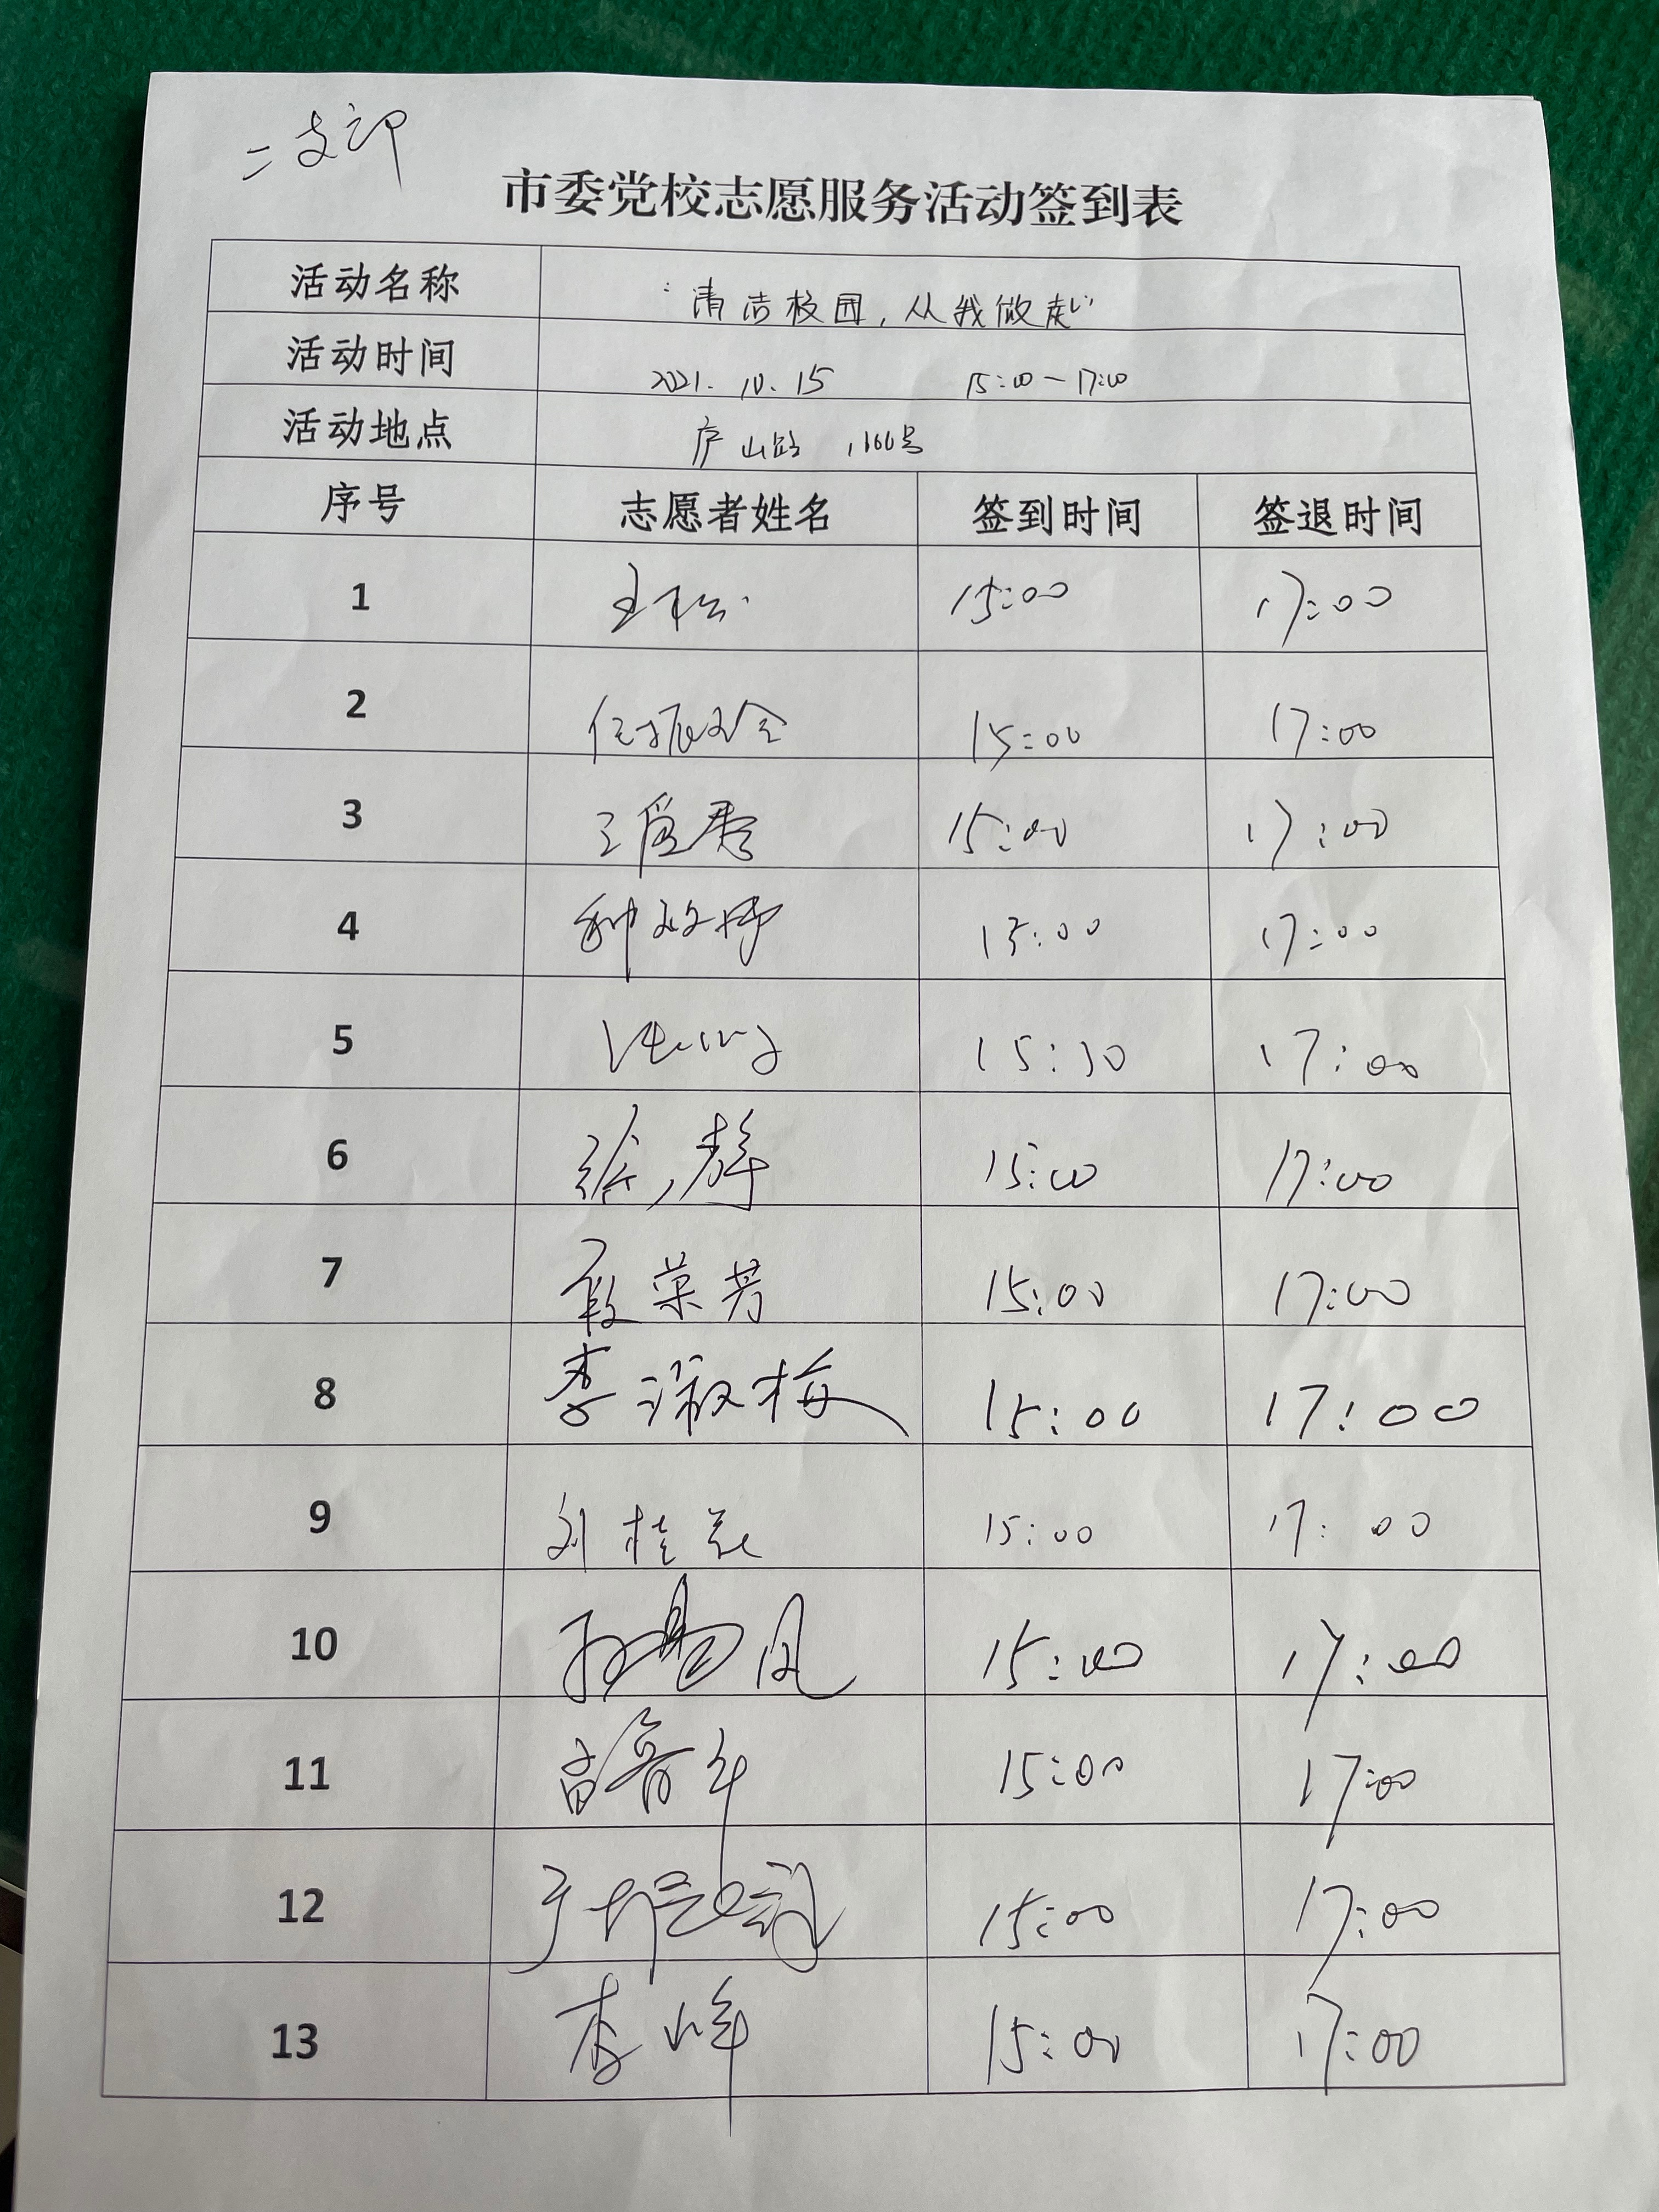 二支部
市委党校志愿服务活动签到表
活动名称 "清洁校园,从我做起"
活动时间 2021.10.15 15:00-17:00
活动地点 庐山路1166号
序号 志愿者姓名 签到时间 签退时间
1 王松 15:00 17:00
2 任振全 15:00 17:00
3 15:00 17:00
4 种政博 15:00 17:00
5 17:00
6 徐静 15:00 17:00
7 段荣芳 15:00 17:00
8 李淑梅 15:00 17:00
9 刘桂花 15:00 17:00
10 15:00 17:00
11 15:00 17:00
12 15:00 17:00
13 李峰 15:00 17:00